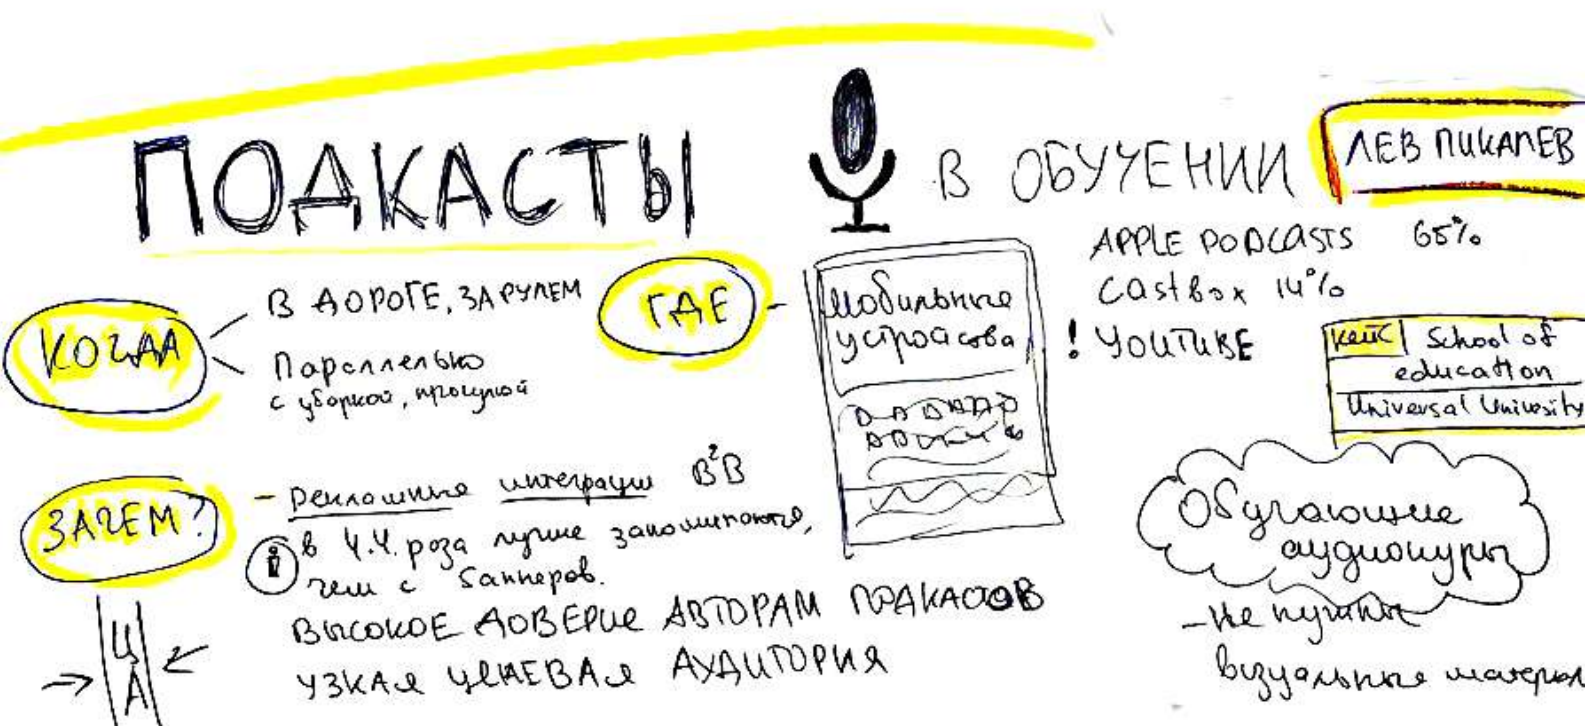 ПОДКАСТЫ В ОБУЧЕНИИ
ЛЕВ ПИКАЛЕВ
КОГДА
В ДОРОГЕ, ЗА РУЛЕМ
Параллельно
с уборкой, прогулкой
ГДЕ
Мобильные
устройства
APPLE PODCASTS 65%
Castbox 14%
! YOUTUBE
Кейс School of
education
Universal University
ЗАЧЕМ?
- Рекламные интеграции B2B
в 4.4. раза лучше запоминаются,
чем с баннеров.
ВЫСОКОЕ ДОВЕРИЕ АВТОРАМ ПОДКАСТОВ
УЗКАЯ ЦЕЛЕВАЯ АУДИТОРИЯ
ЦА
Обучающие
аудиокурсы
- не нужны
визуальные